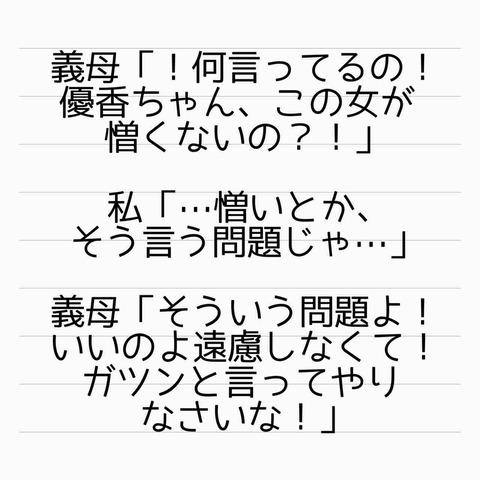 義母「！何言ってるの！
優香ちゃん、この女が
憎くないの？！」
私「…憎いとか、
そう言う問題じゃ…」
義母「そういう問題よ！
いいのよ遠慮しなくて！
ガツンと言ってやり
なさいな！」